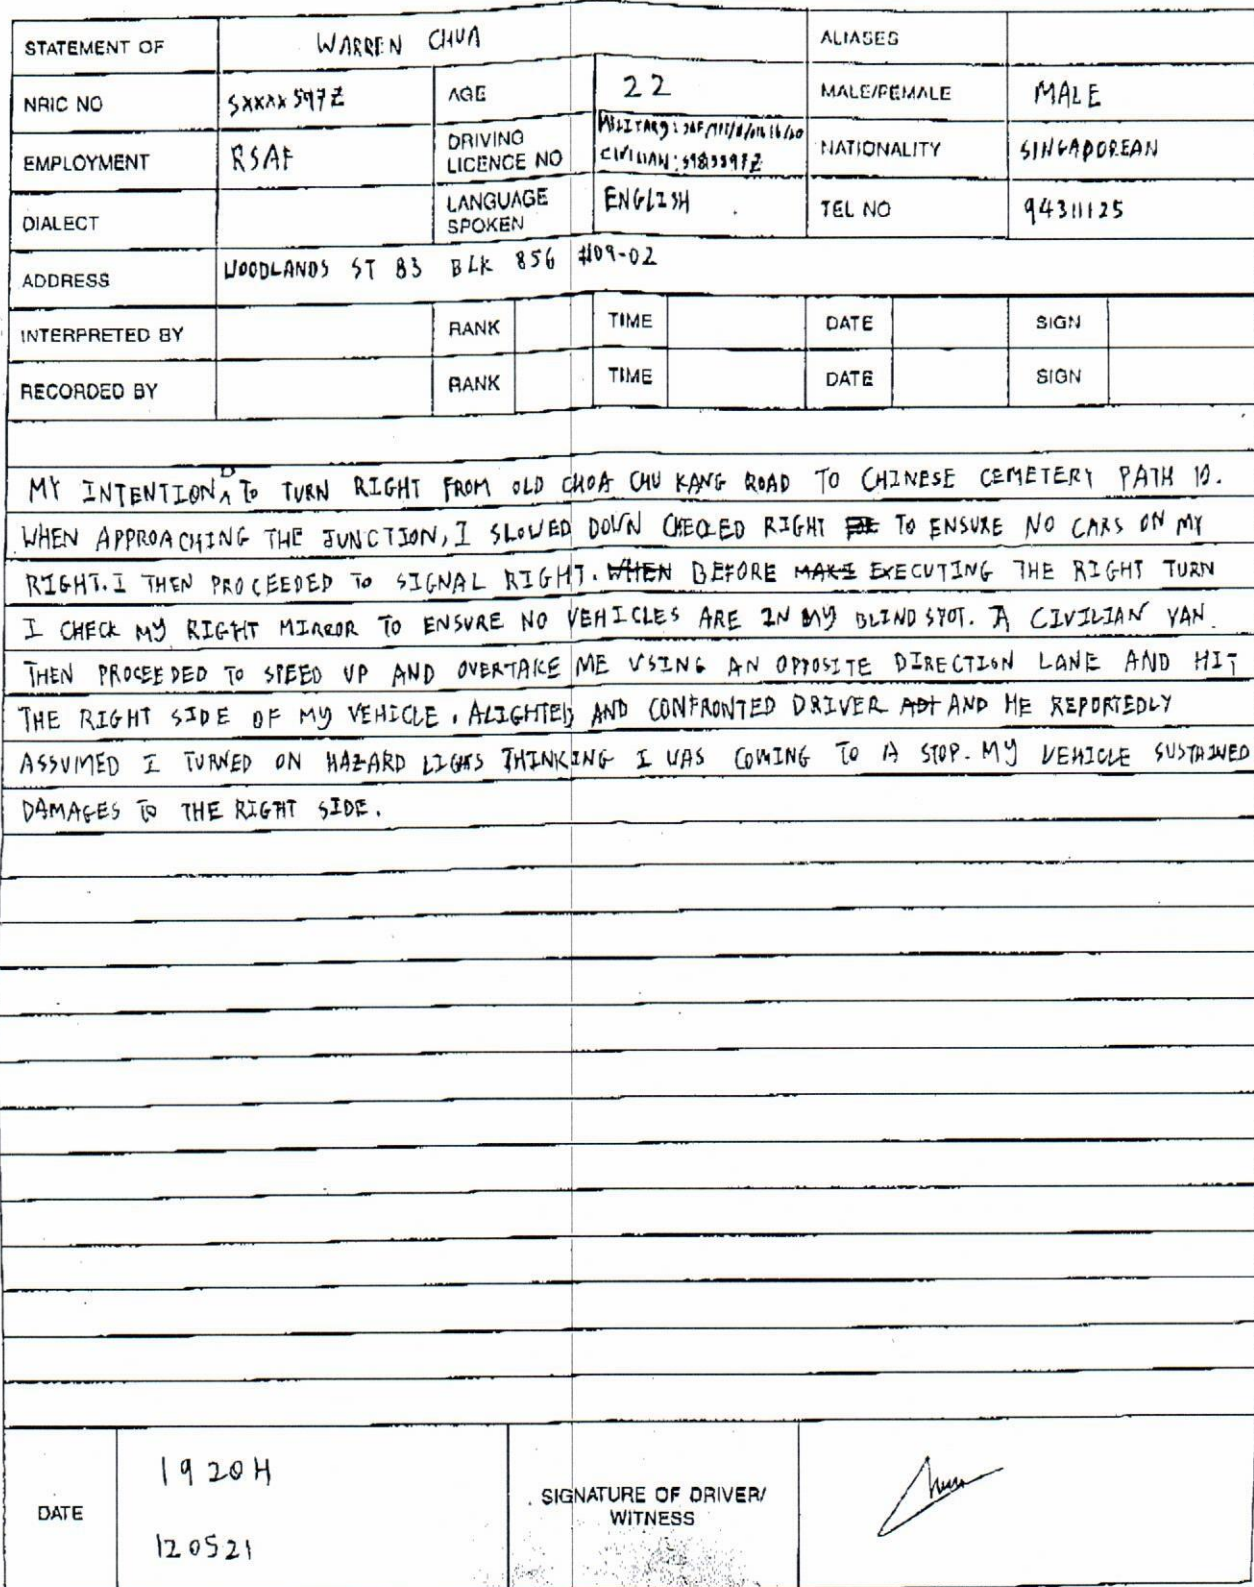 STATEMENT OF WARREN CHUA ALIASES
NRIC NO SXXXX597Z AGE 22 MALE/FEMALE MALE
EMPLOYMENT RSAF DRIVING LICENCE NO MILITARY: CIVILIAN: NATIONALITY SINGAPOREAN
DIALECT LANGUAGE SPOKEN ENGLISH TEL NO 94311125
ADDRESS WOODLANDS ST 83 BLK 856 #09-02
INTERPRETED BY RANK TIME DATE SIGN
RECORDED BY RANK TIME DATE SIGN
MY INTENTION TO TURN RIGHT FROM OLD CHOA CHU KANG ROAD TO CHINESE CEMETERY PATH 10.
WHEN APPROACHING THE JUNCTION, I SLOWED DOWN CHECKED RIGHT TO ENSURE NO CARS ON MY
RIGHT. I THEN PROCEEDED TO SIGNAL RIGHT. WHEN BEFORE MAKI EXECUTING THE RIGHT TURN
I CHECK MY RIGHT MIRROR TO ENSURE NO VEHICLES ARE IN MY BLINDSPOT. A CIVILIAN VAN
THEN PROCEEDED TO SPEED UP AND OVERTAKE ME USING AN OPPOSITE DIRECTION LANE AND HIT
THE RIGHT SIDE OF MY VEHICLE. ALIGHTED AND CONFRONTED DRIVER AND HE REPORTEDLY
ASSUMED I TURNED ON HAZARD LIGHTS THINKING I WAS COMING TO A STOP. MY VEHICLE SUSTAINED
DAMAGES TO THE RIGHT SIDE.
DATE 1920H
120521
SIGNATURE OF DRIVER/
WITNESS